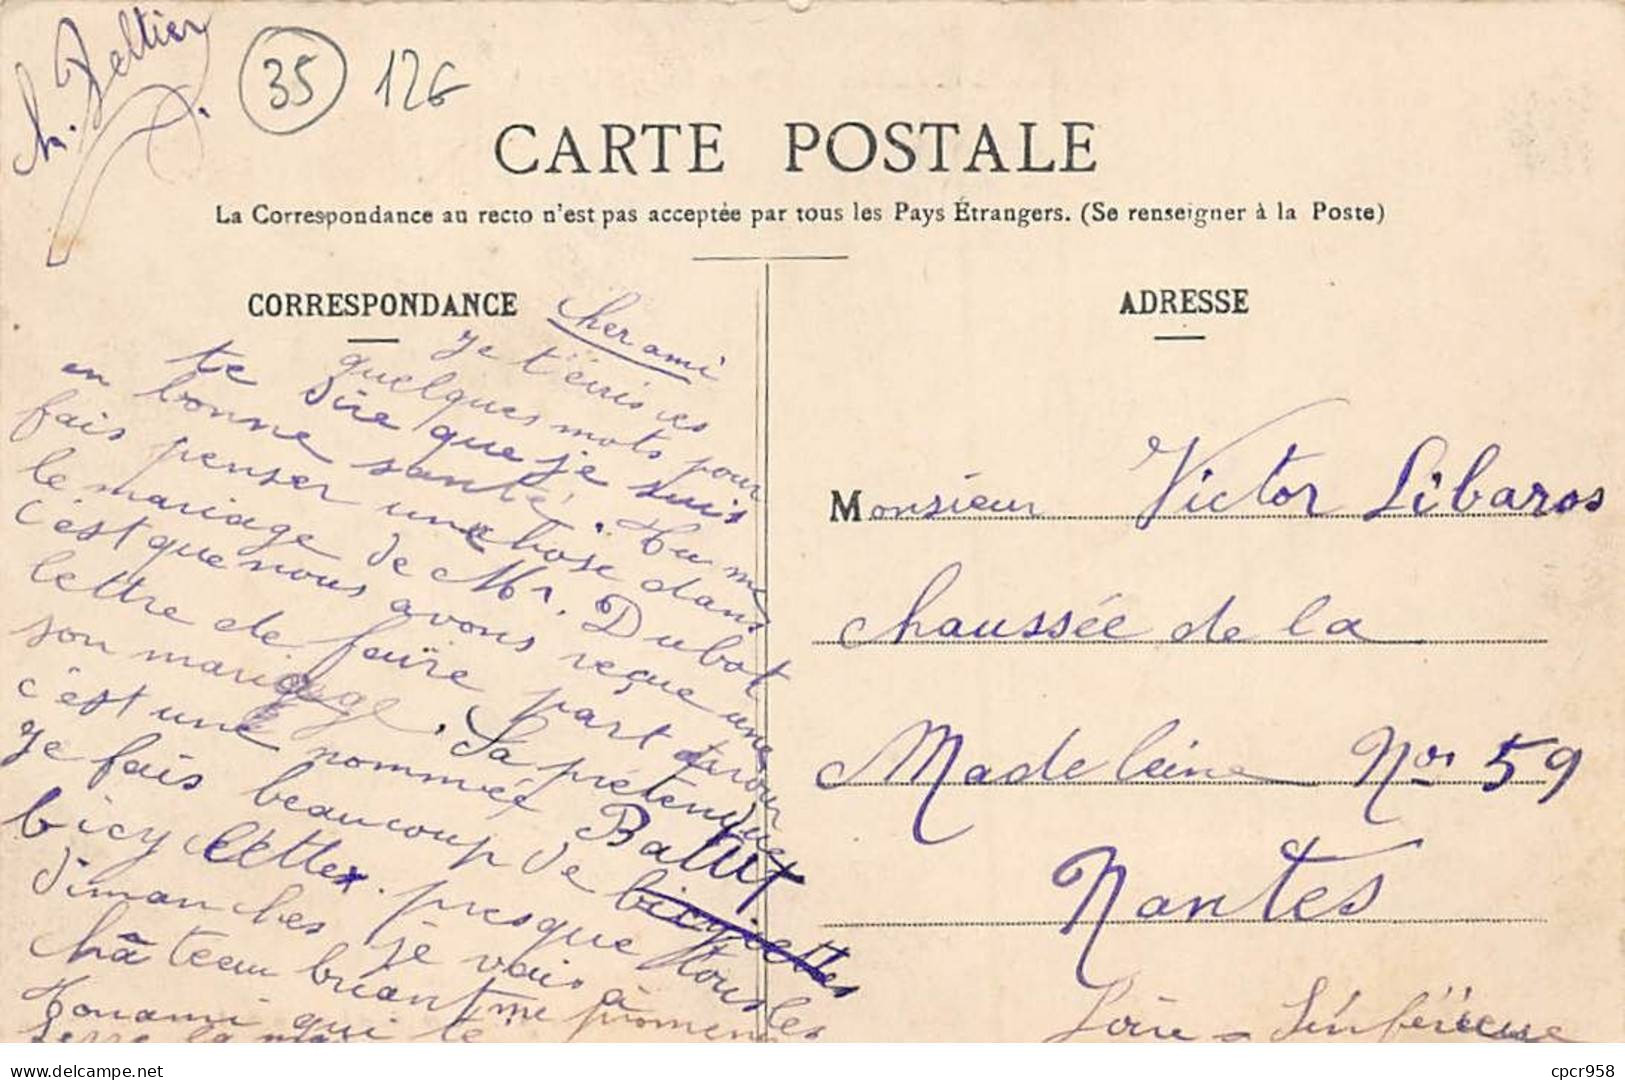 Ch. Peltier
35 126
CARTE POSTALE
La Correspondance au recto n'est pas acceptée par tous les Pays Étrangers. (Se renseigner à la Poste)
CORRESPONDANCE
Cher ami
je t'écris ces
quelques mots pour
te dire que je suis
en bonne santé. Tu me
fais penser une chose dans
le mariage de Mr. Dubot
c'est que nous avons reçue une
lettre de faire part
son mariage. Sa prétendue
c'est une nommée
je fais beaucoup de bicyclettes
bicyclette. presque tous les
dimanches je vais à
châteaubriant me promener
Ton ami qui te
serre la main
ADRESSE
Monsieur Victor Libaros
chaussée de la
Madeleine Nos 59
Nantes
Loire-Inférieure
cpcr958